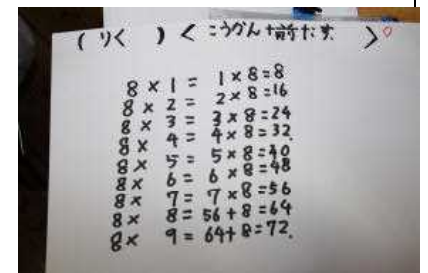 (りく ) < こうかん+前たす >
8 × 1 = 1 × 8 = 8
8 × 2 = 2 × 8 = 16
8 × 3 = 3 × 8 = 24
8 × 4 = 4 × 8 = 32.
8 × 5 = 5 × 8 = 40
8 × 6 = 6 × 8 = 48
8 × 7 = 7 × 8 = 56
8 × 8 = 56 + 8 = 64
8 × 9 = 64 + 8 = 72.